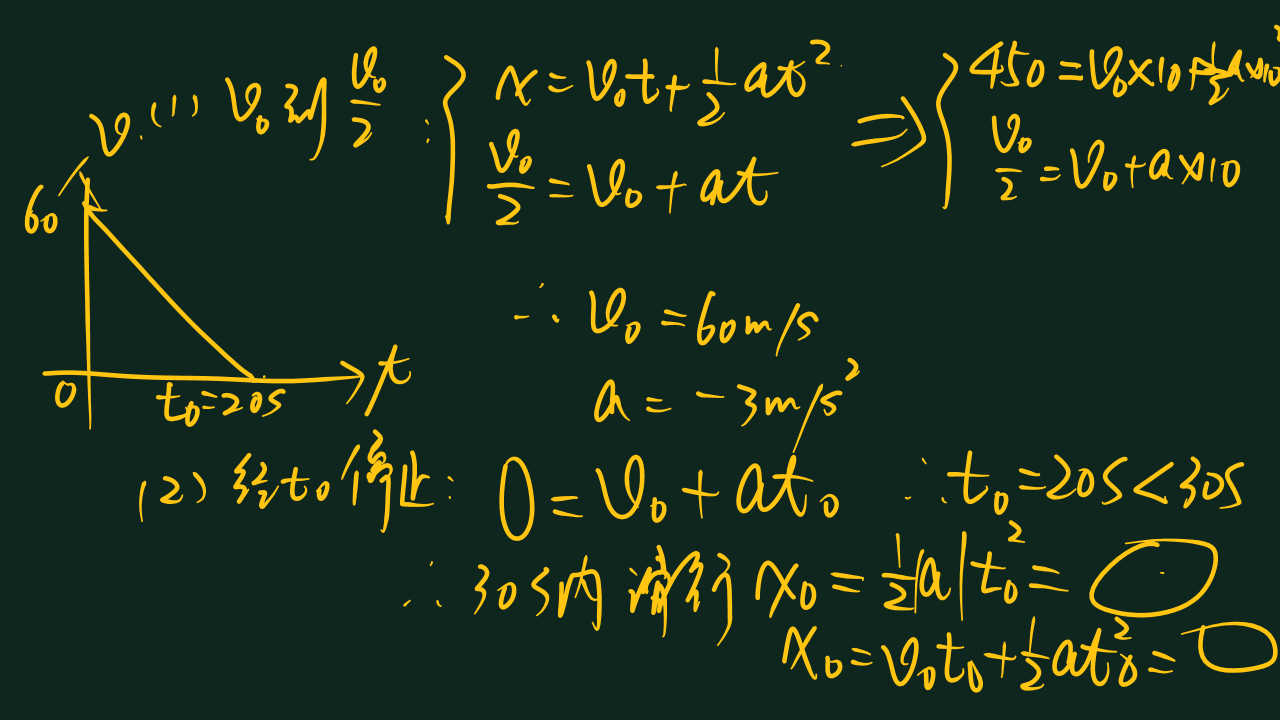 (1) v₀到 v₀/2 :
x = v₀t + ½at²
v₀/2 = v₀ + at
⇒
450 = v₀×10 + ½a×10²
v₀/2 = v₀ + a×10
v
60
0
t₀=20s
t
∴ v₀ = 60m/s
a = -3m/s²
(2) 经t₀停止: 0 = v₀ + at₀ ∴ t₀ = 20s < 30s
∴ 30s内滑行 x₀ = ½|a|t₀² =
x₀ = v₀t₀ + ½at₀² =